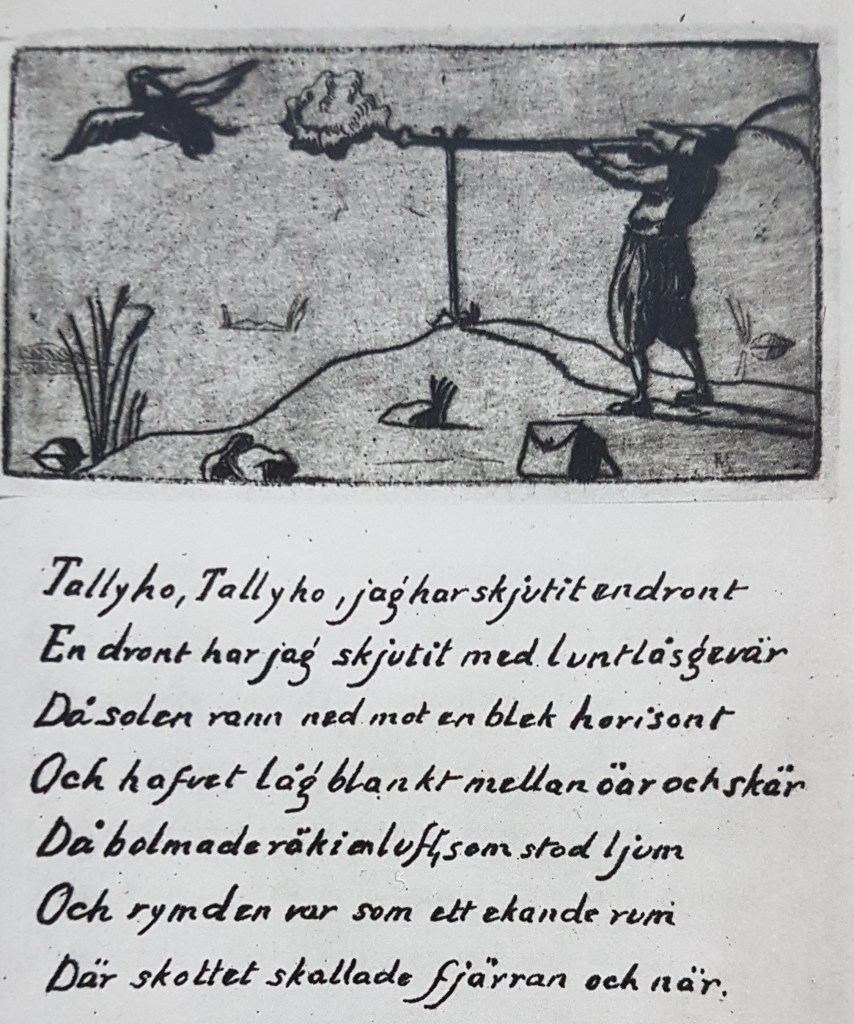 Tallyho, Tallyho, jag har skjutit en dront
En dront har jag skjutit med luntlåsgevär
Då solen rann ned mot en blek horisont
Och hafvet låg blankt mellan öar och skär
Då bolmade rök i en luft, som stod ljum
Och rymden var som ett ekande rum
Där skottet skallade fjärran och när.